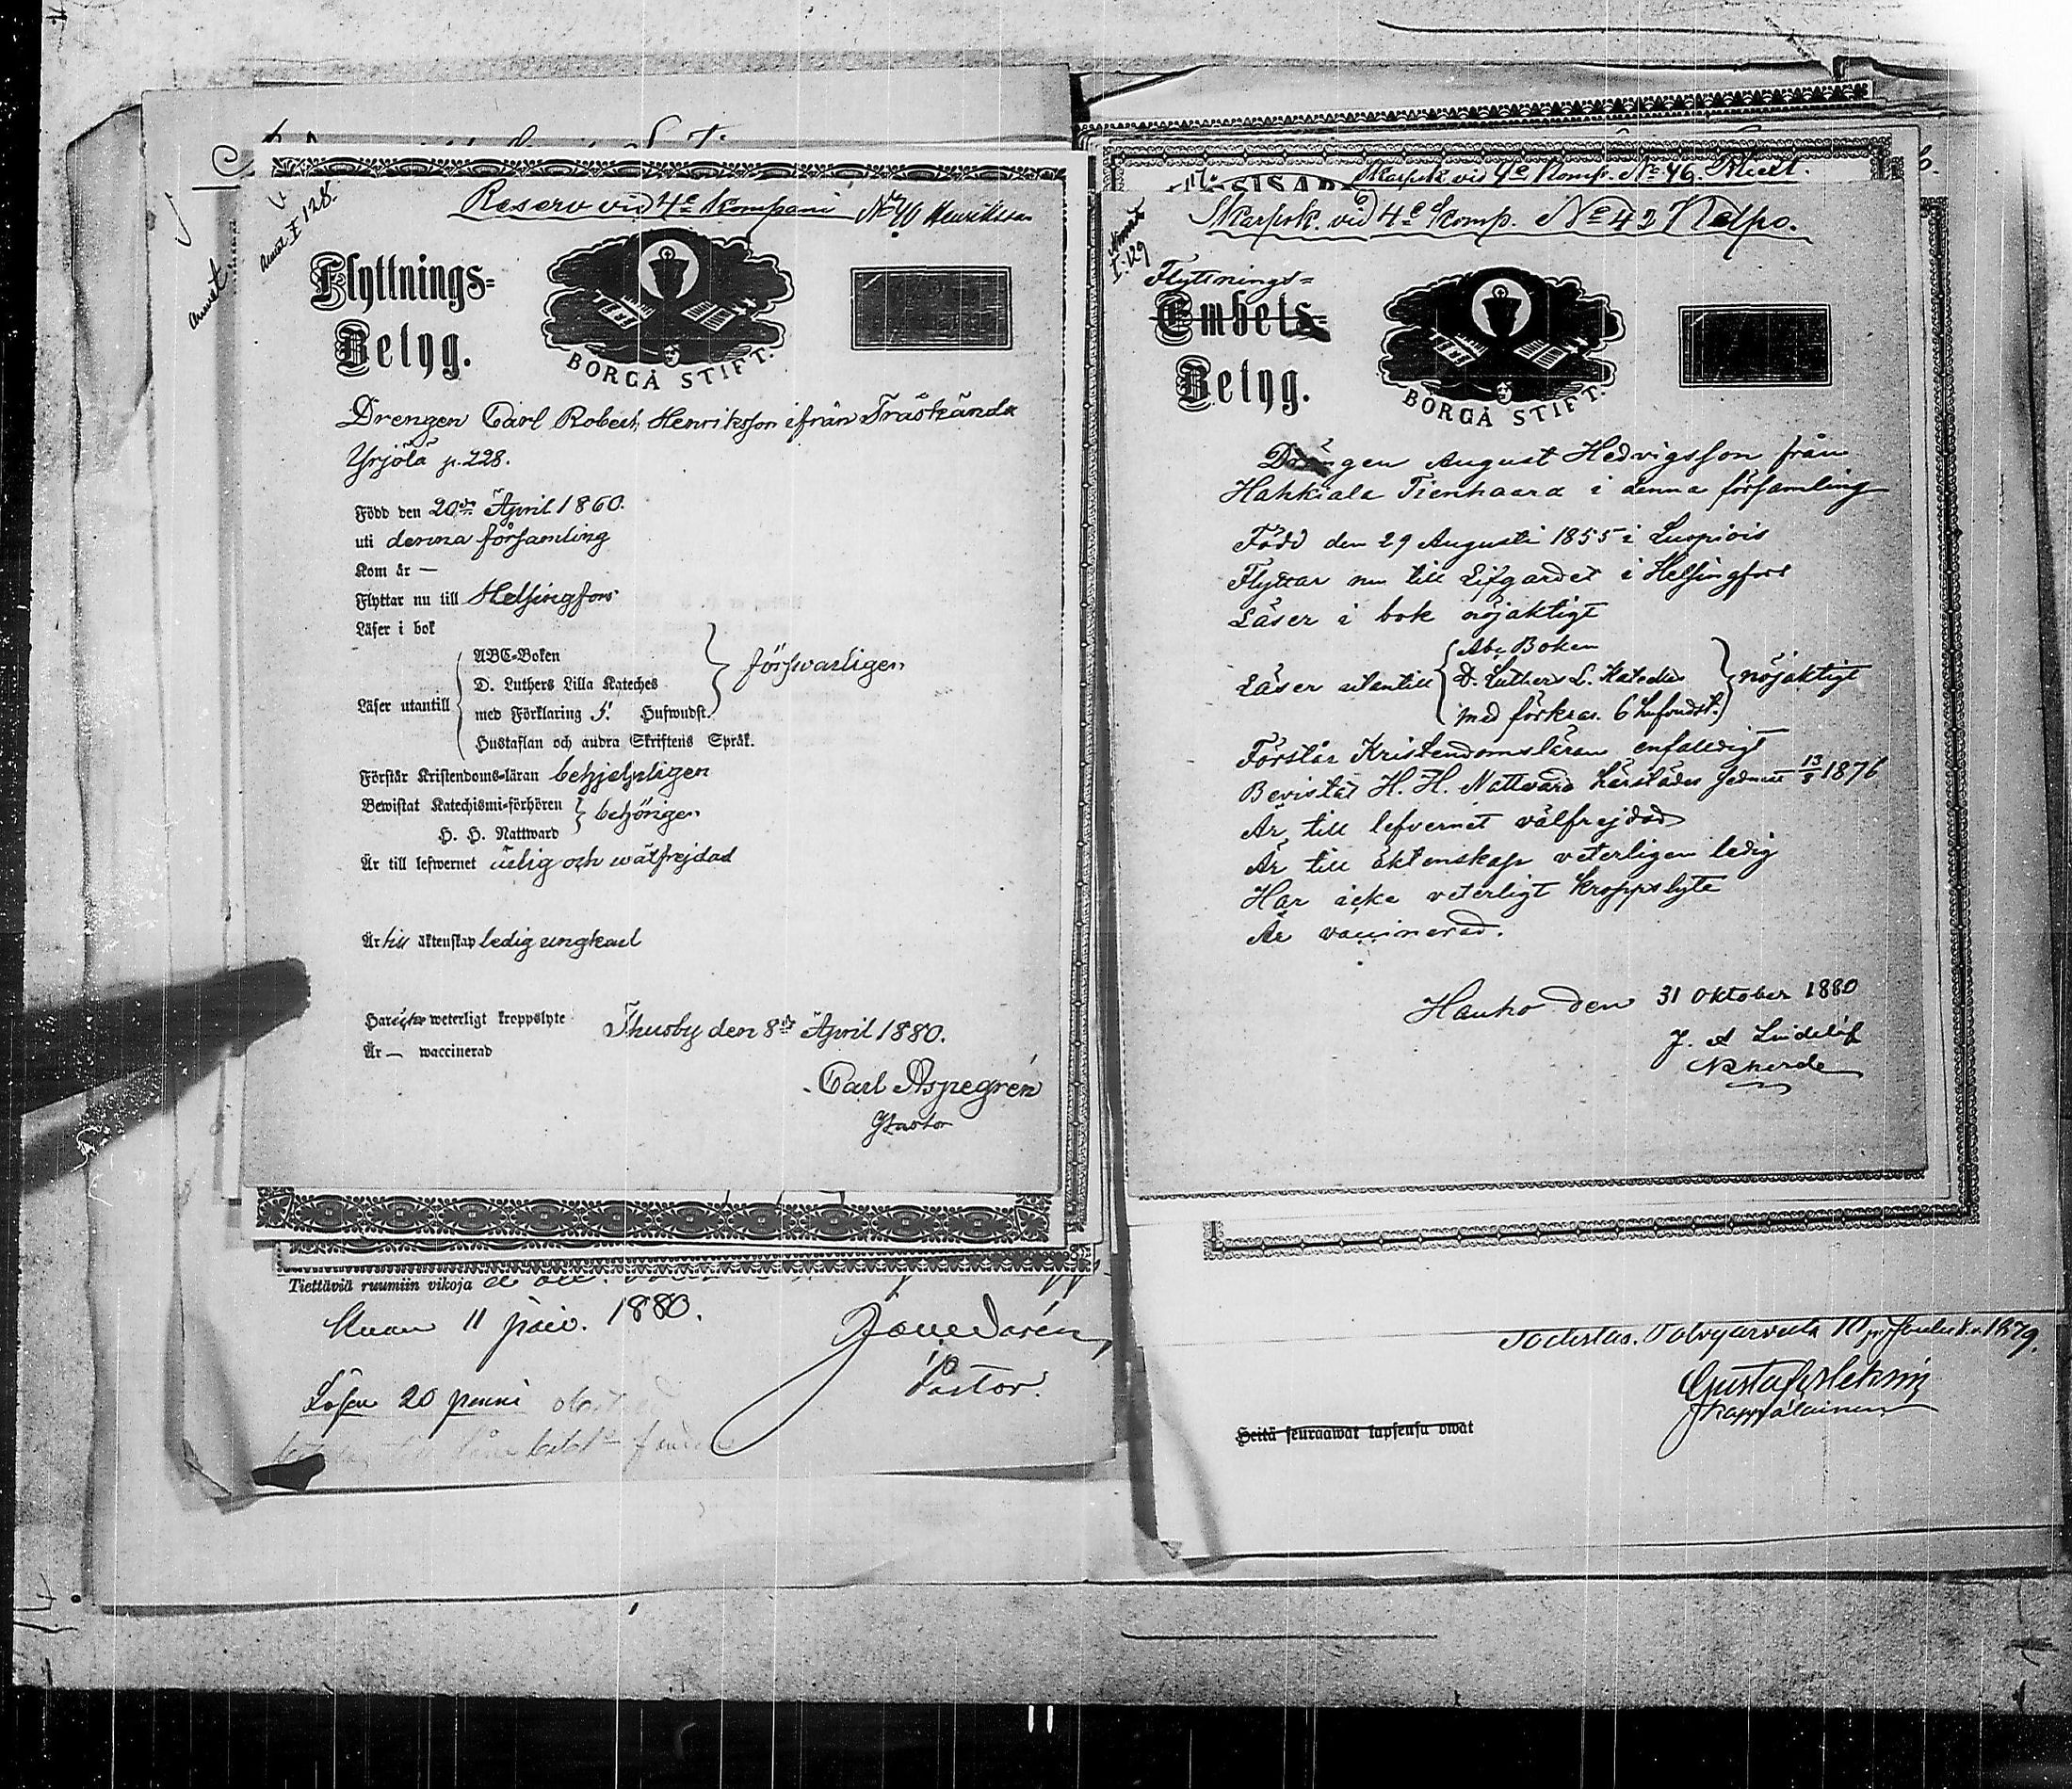 Annot I 128.
Reserv vid 4e Kompani No 40 Henriksson
Flyttnings=
Betyg.
BORGÅ STIFT.
Drengen Carl Robert Henriksson ifrån Träskända
Yrjölä p. 228.
Född den 20de April 1860.
uti denna församling
Kom år —
Flyttar nu till Helsingfors
Läser i bok
Läser utantill
ABC-Boken
D. Luthers Lilla Kateches
med Förklaring 5. Hufwudst.
Hustaflan och andra Skriftens Språk.
försvarligen
Förstår Kristendoms-läran behjelpligen
Bewistat Katechismi-förhören
H. H. Nattward
behörigen
Är till lefwernet ärlig och wälfrejdad
Är till äktenskap ledig ungkarl
Har icke weterligt kroppslyte
Är — waccinerad
Thusby den 8de April 1880.
Carl Aspegrén
Pastor
Tiettäviä ruumiin vikoja
11 päiv. 1880.
Pastor.
Lösen 20 penni
Skarpsk. vid 4e Komp. No 46
Skarpsk. vid 4e Komp. No 42 Nelpo.
I. 129
Flyttnings=
Embets-
Betyg.
BORGÅ STIFT.
Drängen August Hedvigsson från
Hahkiala Tienhaara i denna församling
Född den 29 Augusti 1855 i Luopiois
Flyttar nu till Lifgardet i Helsingfors
Läser i bok nöjaktigt
Läser utantill
Abc Boken
D. Luthers L. Kateches
med förklar. 6 hufvudst.
nöjaktigt
Förstår Kristendomsläran enfaldigt
Bevistat H. H. Nattvard härstädes sednast 13/8 1876
Är till lefvernet välfrejdad
Är till äktenskap veterligen ledig
Har icke veterligt kroppslyte
Är vaccinerad.
Hauho den 31 Oktober 1880
J. A. Lindelöf
1879.
Kappalainen
Heitä seuraawat lapsensa owat